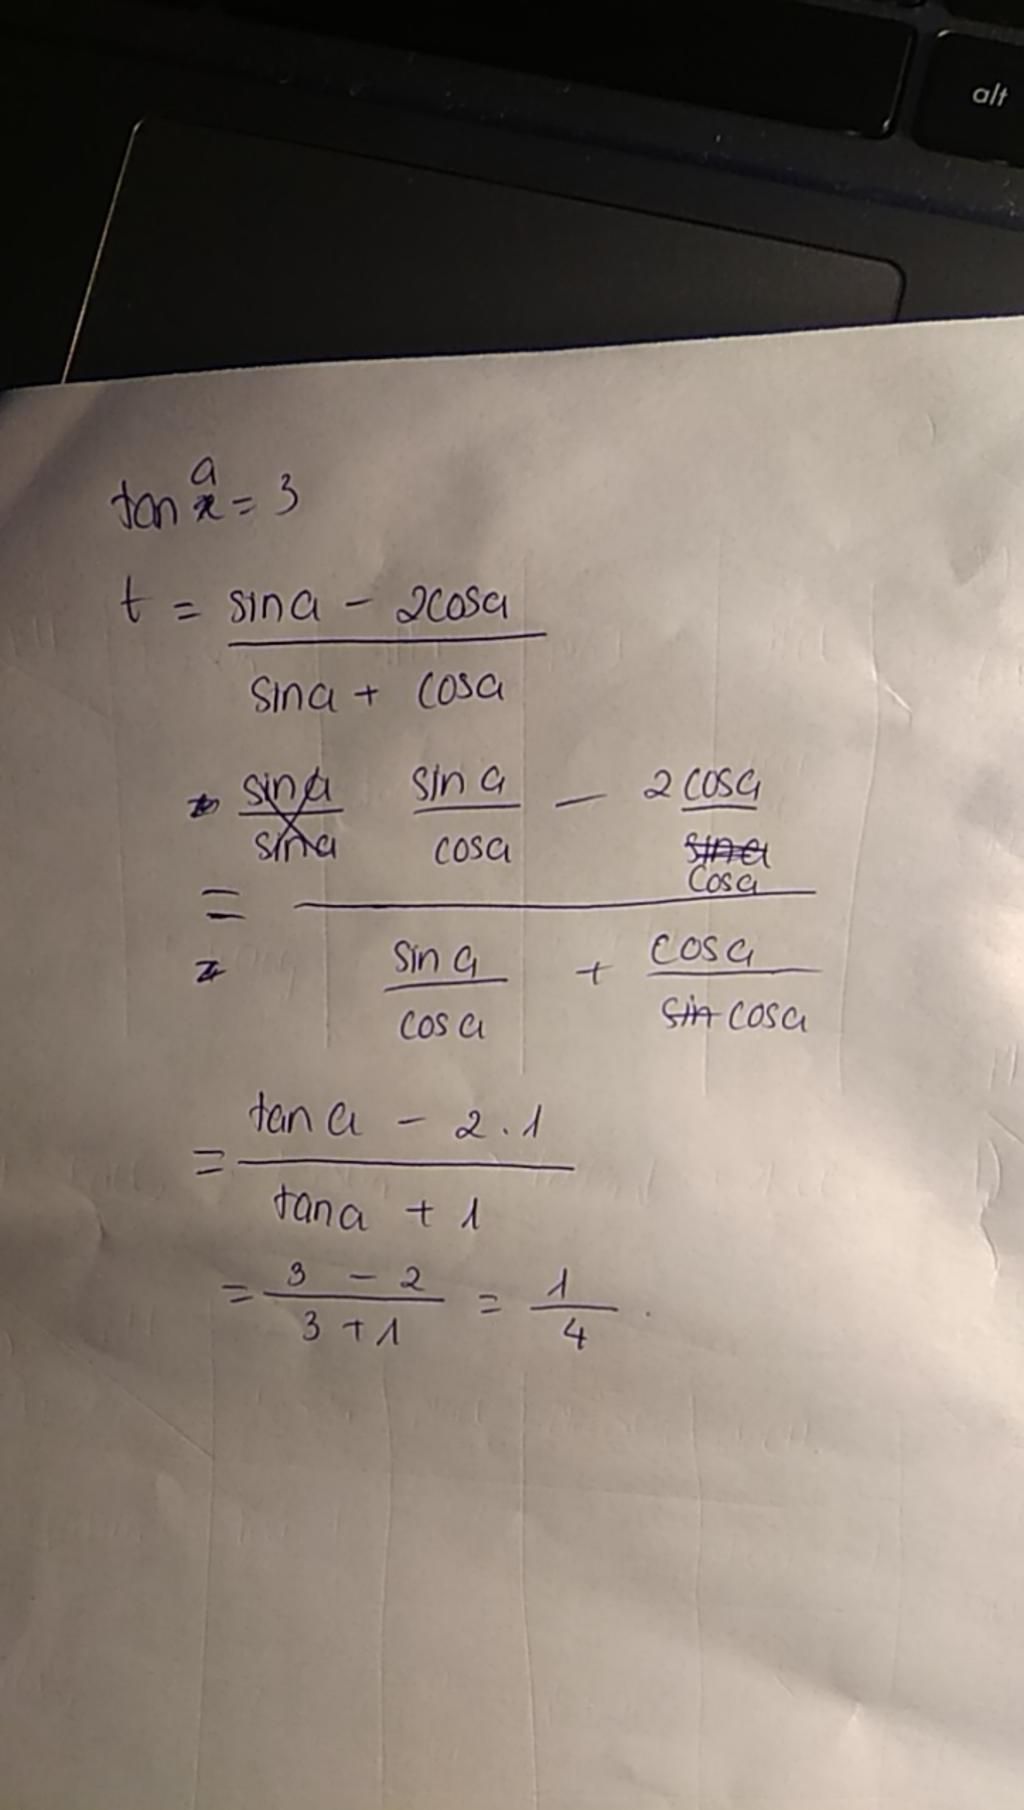 alt
a
tan x = 3
t = sina - 2cosa
sina + cosa
sina sin a - 2 cosa
sina cosa sina
cosa
=
sin a + cosa
cos a sin cosa
= tan a - 2 . 1
tana + 1
= 3 - 2 = 1
3 + 1 4 .